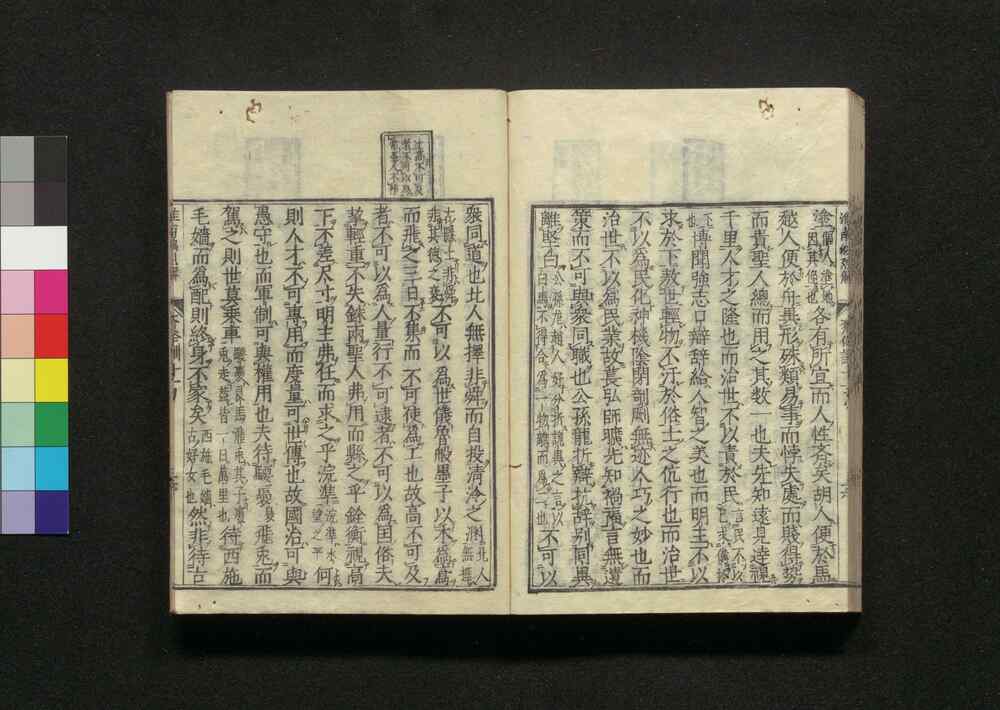 塗各有所宜而人性齊矣胡人便於馬
越人便於舟異形殊類易事而悖失處而賤得勢
而貴聖人總而用之其數一也夫先知遠見達視
千里人才之隆也而治世不以責於民
博聞強志口辯辭給人智之美也而明主不以
求於下敖世輕物不汙於俗士之伉行也而治世
不以為民化神機陰閉剞劂無迹人巧之妙也而
治世不以為民業故萇弘師曠先知禍福言無遺
策而不可與衆同職也公孫龍折辯抗辭別同異
離堅白公孫龍趙人好分析詭異之言以白馬不得合為一物離而為二也不可以
衆同道也北人無擇非舜而自投清泠之淵
不可以為世儀魯般墨子以木為鳶
而飛之三日不集而不可使為工也故高不可及
者不可以為人量行不可逮者不可以為国俗夫
挈輕重不失銖兩聖人弗用而縣之乎銓衡視高
下不差尺寸明主弗任而求之乎浣準浣準水望之平何
則人才不可專用而度量可世傳也故國治可與
愚守也而軍制可與權用也夫待騕褭飛兎而
駕之則世莫乗車待西施
毛嬙而為配則終身不家矣西施毛嬙古好女也然非待古